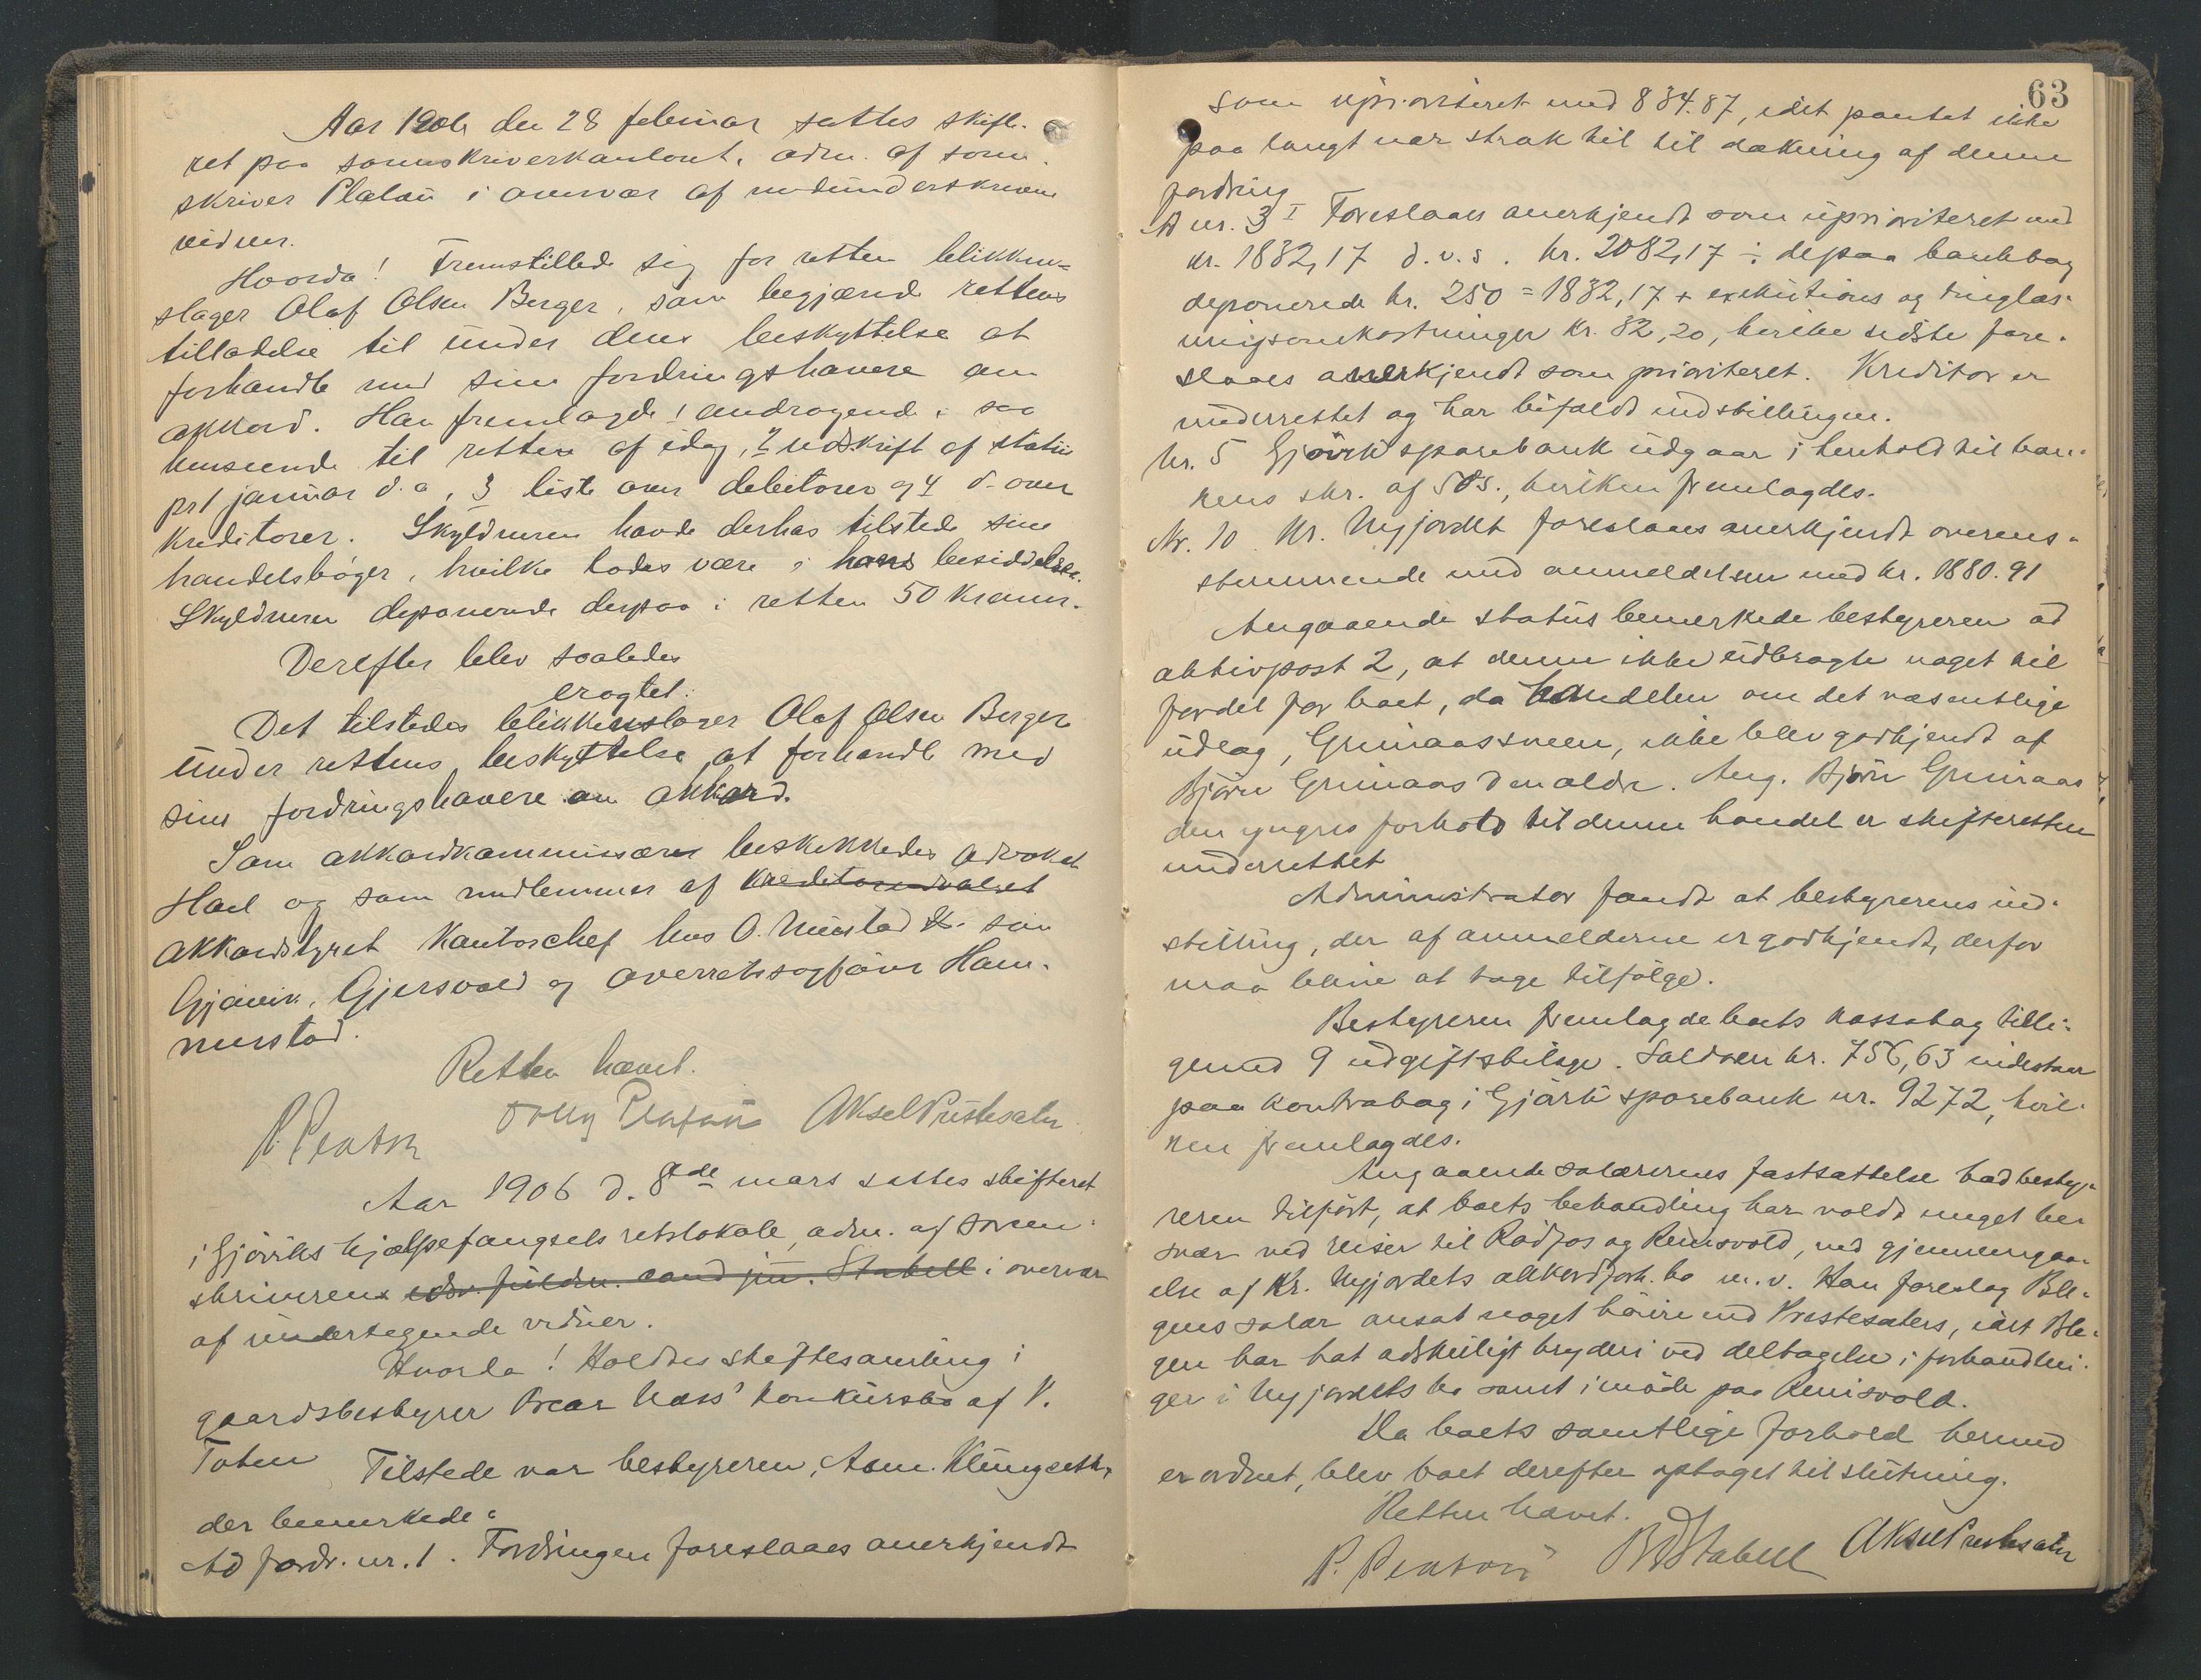 Aar 1906 den 28 februar sattes skifte-
ret paa sorenskriverkontoret, adm. af soren-
skriver Platou i overvær af medunderskrevne
vidner.
Hvorda! Fremstillede sig for retten blikken-
slager Olaf Olsen Berger, som begjærede rettens
tilladelse til under dens beskyttelse at
forhandle med sine fordringshavere om
akkord. Han fremlagde 1 andragende i saa
henseende til retten af idag, 2 udskrift af status
pr 1 januar d.a, 3 liste over debitorer og 4 d. over
kreditorer. Skyldneren havde derhos tilstede sine
handelsbøger, hvilke lodes være i hans besiddelse.
Skyldneren deponerede derpaa i retten 50 kroner.
Derefter blev saaledes
eragtet:
Det tilstedes blikkenslager Olaf Olsen Berger
under rettens beskyttelse at forhandle med
sine fordringshavere om akkord.
Som akkordkommissær beskikkedes advokat
Hael og som medlemmer af kreditorudvalget
akkordstyret kontorchef hos O. Mustad & søn
Gjøvik, Gjersvold og overretssagfører Ham-
merstad.
Retten hævet.
P. Platou Dolly Platou Aksel Prestesæter
Aar 1906 d. 8de mars sattes skifteret
i Gjøviks hjælpefængsels retslokale, adm. af soren-
skriveren edsv. fuldm. cand jur. Stabell i overvær
af undertegnede vidner.
Hvorda! Holdtes skiftesamling i
gaardsbestyrer Oscar Næss' konkursbo af V.
Toten Tilstede var bestyreren, Anm. Klungseth,
der bemerkede:
Ad fordr. nr. 1. Fordringen foreslaaes anerkjendt
63
som uprioriteret med 834.87, idet pantet ikke
paa langt nær strak til til dækning af denne
fordring
A nr. 3 I Foreslaaes anerkjendt som uprioriteret med
kr. 1832,17 d.v.s. kr. 2082,17 ÷ de paa bankbog
deponerede kr. 250 = 1832,17 + exekutions og tinglæs-
ningsomkostninger kr. 32,20, hvilke sidste fore-
slaaes anerkjendt som prioriteret. Kreditor er
underrettet og har bifaldt indstillingen.
Nr. 5 Gjøvik sparebank udgaar i henhold til ban-
kens skr. af 5ds., hvilken fremlagdes.
Nr. 10 Kr. Nyjordet foreslaaes anerkjendt overens-
stemmende med anmeldelsen med kr. 1880.91
Angaaende status bemerkede bestyreren ad
aktivpost 2, at denne ikke udbragte noget til
fordel for boet, da handelen om det væsentlige
udlæg, Grimaassveen, ikke blev godkjendt af
Bjørn Grimaas den ældre. Ang. Bjørn Grimaas
den yngres forhold til denne handel er skifteretten
underrettet
Administrator fandt at bestyrerens ind-
stilling, der af anmelderne er godkjendt, derfor
maa blive at tage tilfølge.
Bestyreren fremlagde boets kassabog tilli-
gemed 9 udgiftsbilage. Saldoen kr. 756,63 indestaar
paa kontrabog i Gjøvik sparebank nr. 9272, hvil-
ken fremlagdes.
Angaaende salærernes fastsættelse bad besty-
reren tilført, at boets behandling har voldt meget be-
svær ved reiser til Rødfos og Reinsvold, ved gjennemgaa-
else af Kr. Nyjordets akkordforh. bo m.v. Han foreslog Ble-
gens salær ansat noget høiere end Prestesæters, idet Ble-
gen har hat adskilligt bryderi ved deltagelse i forhandlin-
ger i Nyjordets bo samt i møde paa Reinsvold.
Da boets samtlige forhold hermed
er ordnet, blev boet derefter optaget til slutning.
Retten hævet.
P. Platou Stabell Aksel Prestesæter